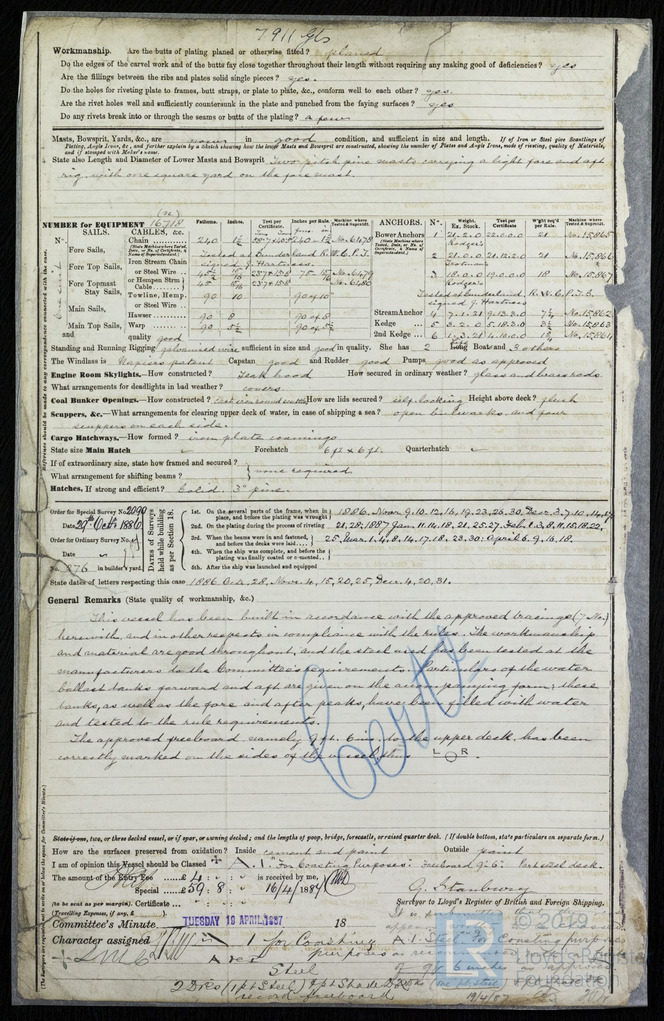 7911 Gls
Workmanship. Are the butts of plating planed or otherwise fitted? planed
Do the edges of the carvel work and of the butts fay close together throughout their length without requiring any making good of deficiencies? yes
Are the fillings between the ribs and plates solid single pieces? yes.
Do the holes for riveting plate to frames, butt straps, or plate to plate, &c., conform well to each other? yes.
Are the rivet holes well and sufficiently countersunk in the plate and punched from the faying surfaces? yes
Do any rivets break into or through the seams or butts of the plating? a few
Masts, Bowsprit, Yards, &c., are in good condition, and sufficient in size and length. If of Iron or Steel give Scantlings of
Plating, Angle Irons, &c., and further explain by a Sketch showing how the lower Masts and Bowsprit are constructed, showing the number of Plates and Angle Irons, mode of riveting, quality of Materials,
and if stamped with Maker's name.
State also Length and Diameter of Lower Masts and Bowsprit Two pitch pine masts carrying a light fore and aft
rig, with one square yard on the fore mast.
NUMBER for EQUIPMENT 16718
SAILS. CABLES, &c. Fathoms. Inches. Test per Certificate. Inches per Rule. Machine where Tested & Suprntdt. ANCHORS. Nº. Weight. Ex. Stock Test per Certificate Wght req'd per Rule Machine where Tested & Suprntdt.
Nº.
Chain 240 No. 6478
Bower Anchors 1 21.2.0 22.0.0.0 21 No. 15865
Rodgers
Fore Sails,
Tested at Sunderland R.W.C.P.T.
signed J. Hartness
Fore Top Sails,
Iron Stream Chain or Steel Wire No. 6479
2 21.0.0 21 No. 15866
Fore Topmast Stay Sails,
or Hempen Strm Cable No. 6480
3 18.0.0 19.0.0.0 18 No. 15867
Rodgers
Towline, Hemp. or Steel Wire 90 10 90 of 10
Tested at Sunderland, R.W.C.P.T.S
signed J. Hartness
Main Sails,
Hawser 90 8 90 of 8
Stream Anchor 4 No. 15862
Main Top Sails, and
Warp 90 5½ 90 of 5½
Kedge 5 No. 15863
quality good
2nd Kedge 6 No. 15864
Standing and Running Rigging galvanised wire sufficient in size and good in quality. She has 2 Boats and 3 others
The Windlass is Napiers patent Capstan good and Rudder good Pumps good as approved
Engine Room Skylights.—How constructed? Teak hood How secured in ordinary weather? glass and brass rods
What arrangements for deadlights in bad weather? covers
Coal Bunker Openings.—How constructed? How are lids secured? self locking Height above deck? flush
Scuppers, &c.—What arrangements for clearing upper deck of water, in case of shipping a sea? open bulwarks, and four
scuppers on each side.
Cargo Hatchways.—How formed? iron plate coamings
State size Main Hatch Forehatch 6ft x 6ft. Quarterhatch
If of extraordinary size, state how framed and secured?
What arrangement for shifting beams? none required
Hatches, If strong and efficient? Solid 3" pine.
Order for Special Survey No. 2090
Date 29th Octr 1886
Order for Ordinary Survey No.
Date
No. 376 in builder's yard.
Dates of Surveys held while building as per Section 18.
1st. On the several parts of the frame, when in place, and before the plating was wrought 1886. Novr. 9.10.12.16.19.23.26.30. Decr. 3.7.10.14.17.
2nd. On the plating during the process of riveting 21.28.1887 Jany. 11.14.18.21.25.27. Feb. 1.3.8.11.15.18.22.
3rd. When the beams were in and fastened, and before the decks were laid 25. Mar. 1.4.8.14.17.18.23.30. April 6.9.16.18.
4th. When the ship was complete, and before the plating was finally coated or cemented
5th. After the ship was launched and equipped
State dates of letters respecting this case 1886 Oct. 28, Nov. 4, 15, 20, 25, Dec. 4, 20, 31.
General Remarks (State quality of workmanship, &c.)
This vessel has been built in accordance with the approved tracings (7 No.)
herewith, and in other respects in compliance with the rules. The workmanship
and material are good throughout, and the steel used has been tested at the
manufacturers to the Committee's requirements. Particulars of the water
ballast tanks forward and aft are given on the accompanying form; these
tanks, as well as the fore and after peaks, have been filled with water
and tested to the rule requirements.
The approved freeboard namely 9ft. 6ins. to the upper deck, has been
correctly marked on the sides of the vessel thus L R
State if one, two, or three decked vessel, or if spar, or awning decked; and the lengths of poop, bridge, forecastle, or raised quarter deck. (If double bottom, state particulars on separate form.)
How are the surfaces preserved from oxidation? Inside cement and paint Outside paint
I am of opinion this Vessel should be Classed A.1. For Coasting Purposes. Freeboard 9.6. Part steel deck.
The amount of the Entry Fee £4 : : is received by me,
Special £59.8 : 16/4/1887
(to be sent as per margin). Certificate
G. Stanbury
Surveyor to Lloyd's Register of British and Foreign Shipping.
(Travelling Expenses, if any, £ )
Committee's Minute TUESDAY 19 APRIL 1887 18
Character assigned A 1 for Coasting
purposes
A 1. Steel. For Coasting purposes
Steel
2 Dks (1 pt Steel)
record freeboard
19/4/87
© 2019
Lloyd's Register
Foundation